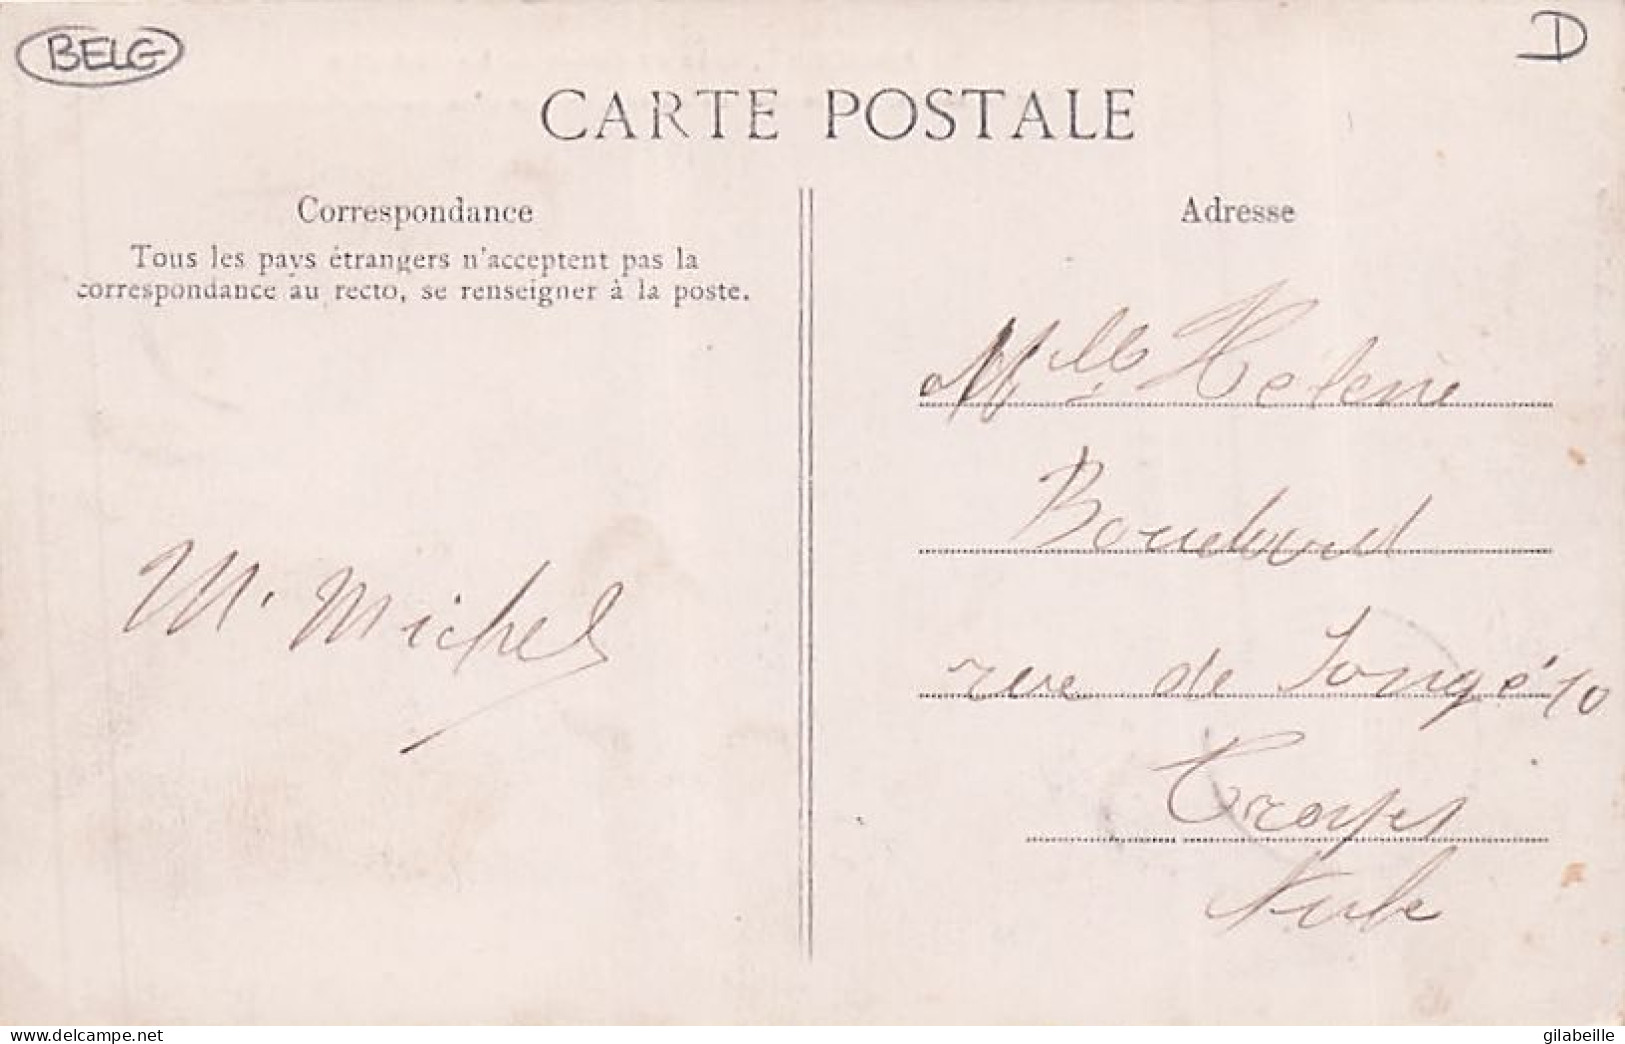 BELG
D
CARTE POSTALE
Correspondance
Tous les pays étrangers n'acceptent pas la
correspondance au recto, se renseigner à la poste.
M. Michel
Adresse
Mlle Helène
rue de 10
Troyes
Aube
delcampe.net
gilabeille